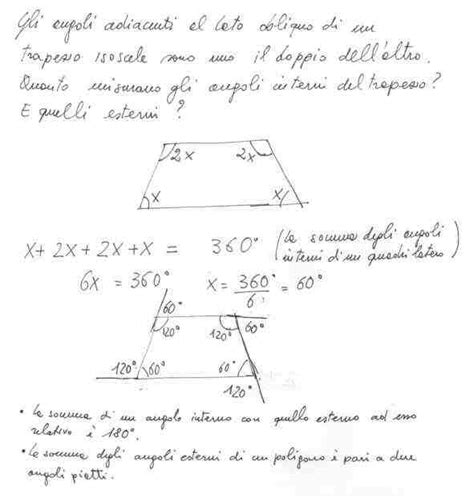 Gli angoli adiacenti al lato obliquo di un
trapezio isoscele sono uno il doppio dell'altro.
Quanto misurano gli angoli interni del trapezio?
E quelli esterni?
2x 2x
x x
x + 2x + 2x + x = 360° (la somma degli angoli
interni di un quadrilatero)
6x = 360° x = 360°/6 = 60°
60°
120° 120° 60°
120° 60° 60°
120°
• La somma di un angolo interno con quello esterno ad esso
relativo è 180°.
• La somma degli angoli esterni di un poligono è pari a due
angoli piatti.